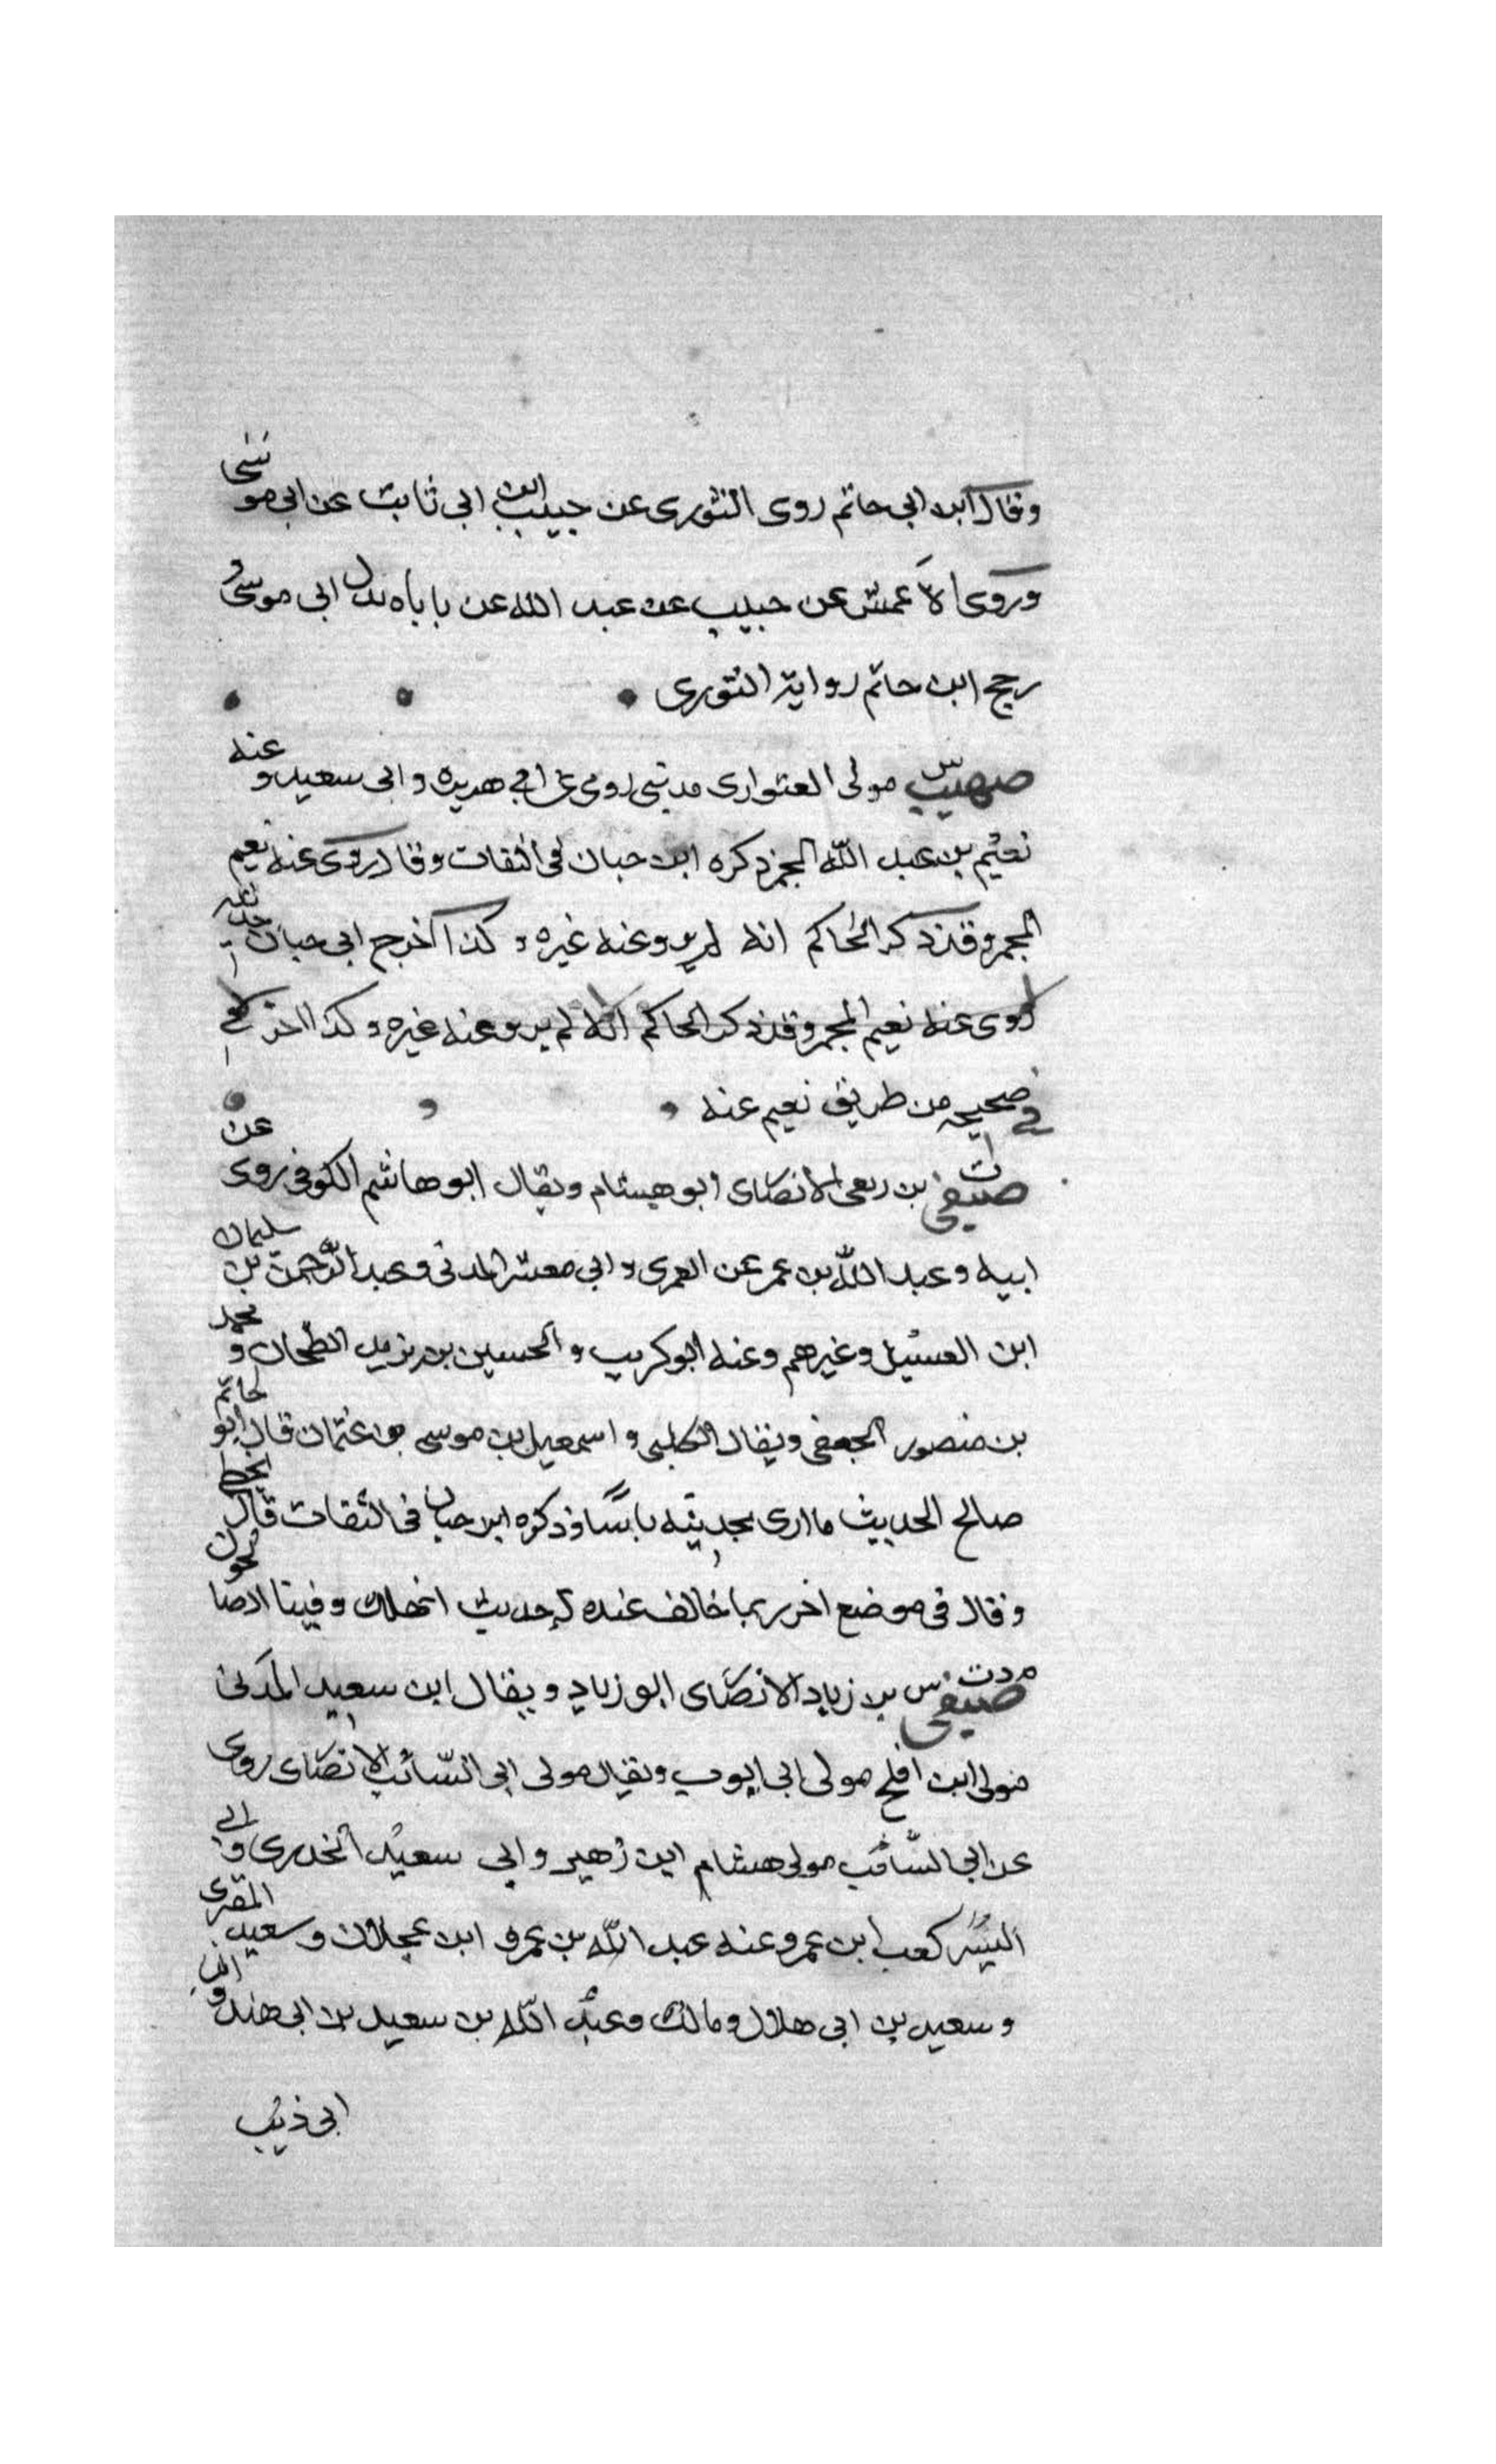 وقال ابن ابي حاتم روى الثورى عن حبيب ابن ابي ثابت عن ابي موسى
وروى الاعمش عن حبيب عن عبد الله عن باباه بدل ابي موسى
رجح ابن حاتم رواية الثورى
صهيب مولى العتوارى مدني روى عن ابي هريره وابى سعيد وعنه
نعيم بن عبد الله المجمر ذكره ابن حبان فى الثقات وقال روى عنه نعيم
المجمر وقد ذكر الحاكم انه لم يرو عنه غيره وكذا اخرج ابى حبان حديثه
روى عنه نعيم المجمر وقد ذكر الحاكم انه لم يرو عنه غيره وكذا اخر
في صحيحه من طريق نعيم عنه
صيفي بن ربعى الانصاى ابو هشام ويقال ابو هاشم الكوفى روى عن
ابيه وعبد الله بن عمر عن العمرى وابي معشر المدنى وعبد الرحمن بن سليمان
ابن الغسيل وغيرهم وعنه ابو كريب والحسين بن يزيد الطحان ومحمد
بن منصور الجعفى ويقال الكلبى واسمعيل بن موسى بن عثمان قال ابو حاتم
صالح الحديث ما ارى بحديثه باسا وذكره ابن حبان فى الثقات قال
وقال فى موضع اخر ربما خالف عنده له حديث انهلك وفينا الصا لحون
صيفي بن زياد الانصاى ابو زياد ويقال ابن سعيد المدنى
مولى ابن افلح مولى ابى ايوب ويقال مولى ابى السائب الانصاى روى
عن ابى السائب مولى هشام ابن زهير وابي سعيد الخدرى وابي
اليسر كعب ابن عمر وعنه عبد الله بن عمر و ابن عجلان وسعيد المقبرى
وسعيد بن ابى هلال ومالك وعبد الله بن سعيد بن ابى هند وابن
ابى ذئب